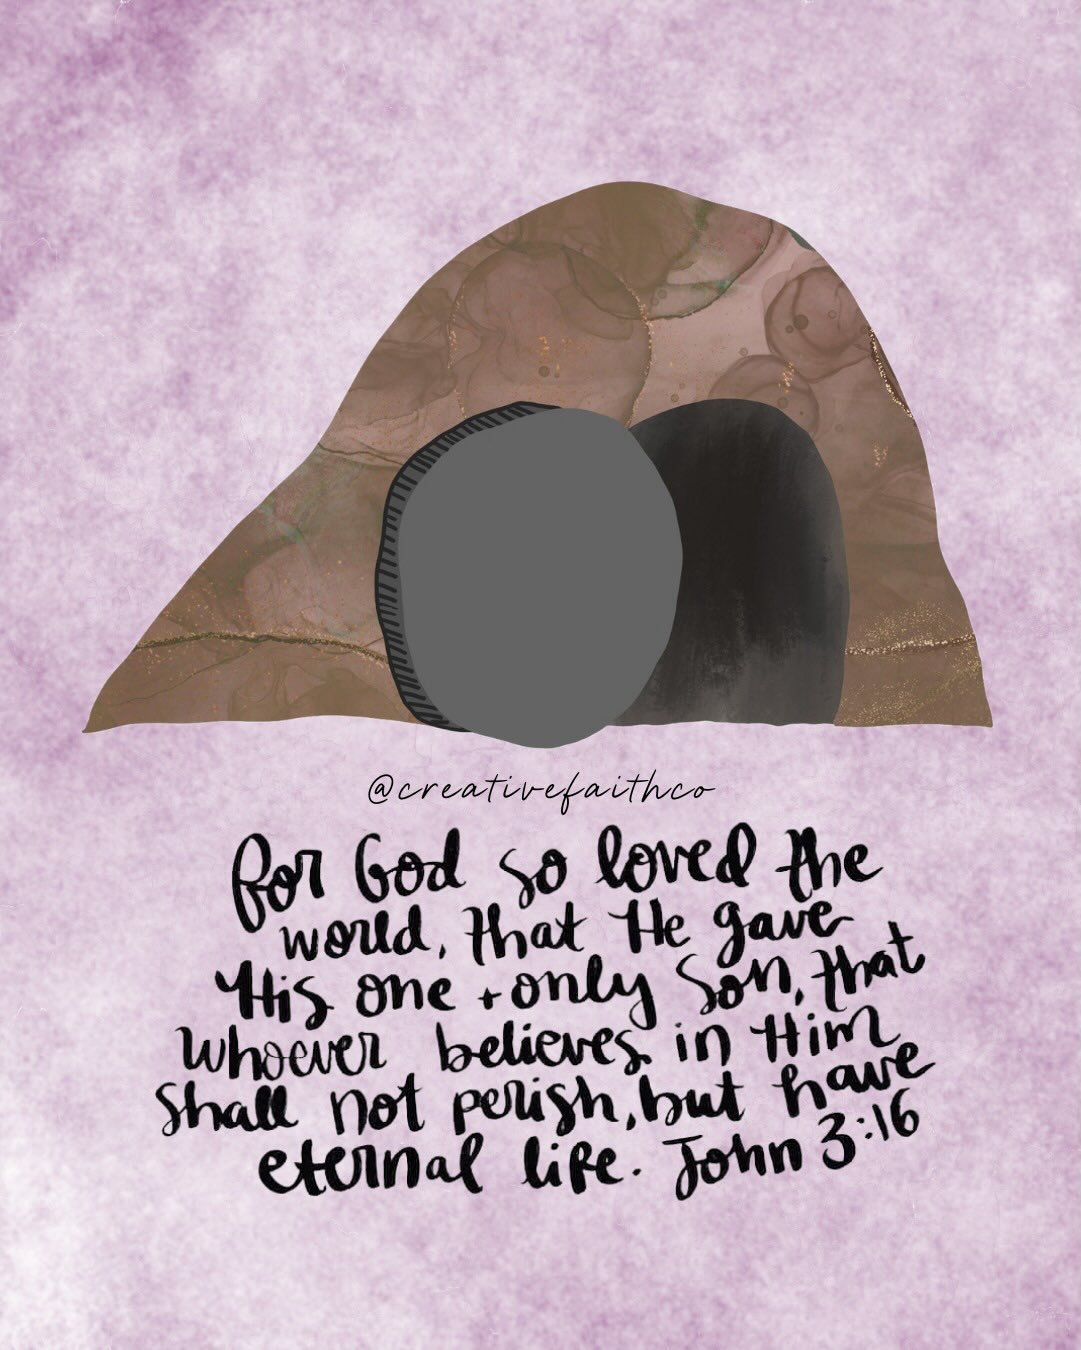 @creativefaithco
For God so loved the
world, that He gave
His one + only Son, that
whoever believes in Him
shall not perish, but have
eternal life. John 3:16